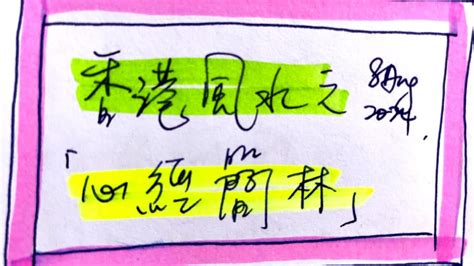 香港風水之
8 Aug
2024
「心經簡林」